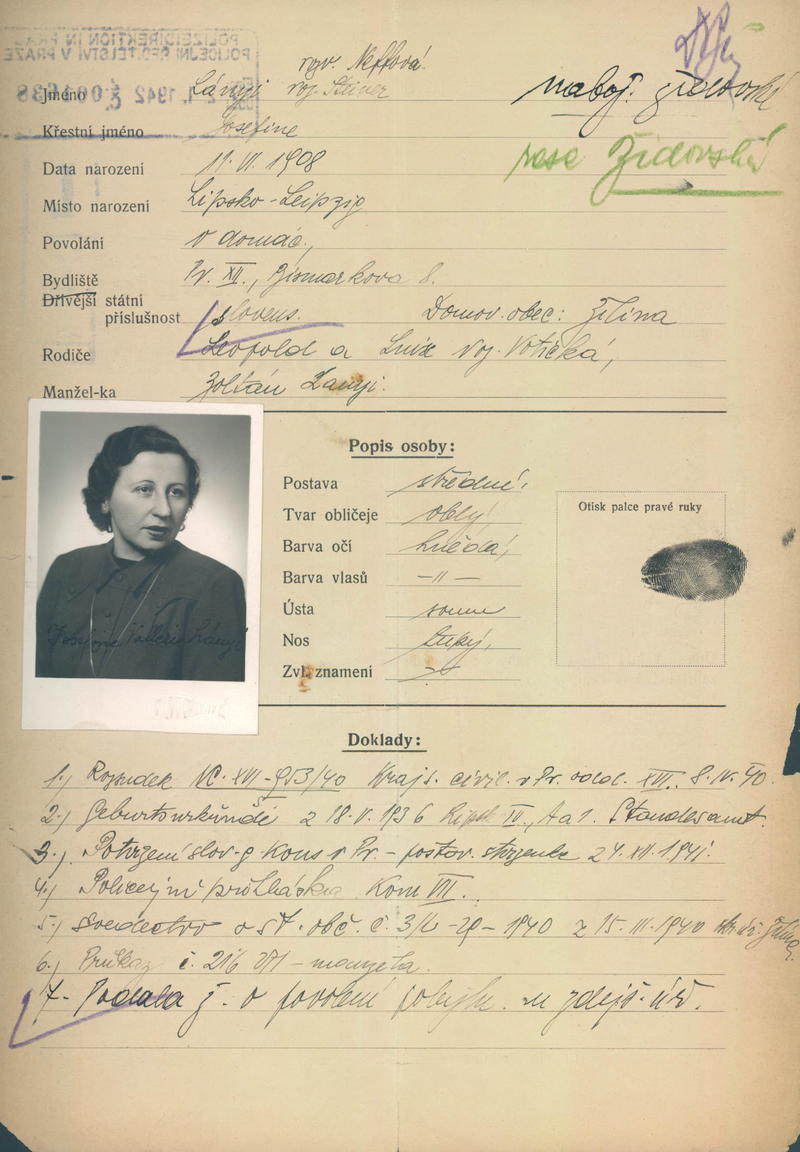 POLIZEIDIREKTION IN PRAG
POLICEJNÍ ŘEDITELSTVÍ V PRAZE
1942
rozv. Neffová
Jméno Lányi roz. Steiner
nábož. židovské
Křestní jméno Josefine
rasa Židovská
Data narození 11. VI. 1908
Místo narození Lipsko-Leipzig
Povolání v domác.,
Bydliště Pr. XII., Bismarkova 8.
Dřívější státní
příslušnost slovens. Domov. obec: Žilina
Rodiče Leopold a roz. Votická,
Manžel-ka Zoltán Lanyi.
Popis osoby:
Postava střední,
Tvar obličeje oblý,
Barva očí hnědá,
Barva vlasů —„—
Ústa
Nos tupý,
Zvl. znamení
Otisk palce pravé ruky
Josefine Lányi
Doklady:
1.) Rozsudek Kraj. civil. v Pr. odd. XVII. 8. IV. 40.
2.) Geburtsurkunde z 18. V. 1936 Standesamt.
3.) Potvrzení slov. g. kons v Pr. 24. XII. 1941.
4.) Policejní přihláška Kom VII.
5.) Svedectvo o st. obč. č. 1940 z 15. III. 1940
6.) Průkaz č. manžela.
7.- Podala ž. o povolení pobytu u zdejš. úř.